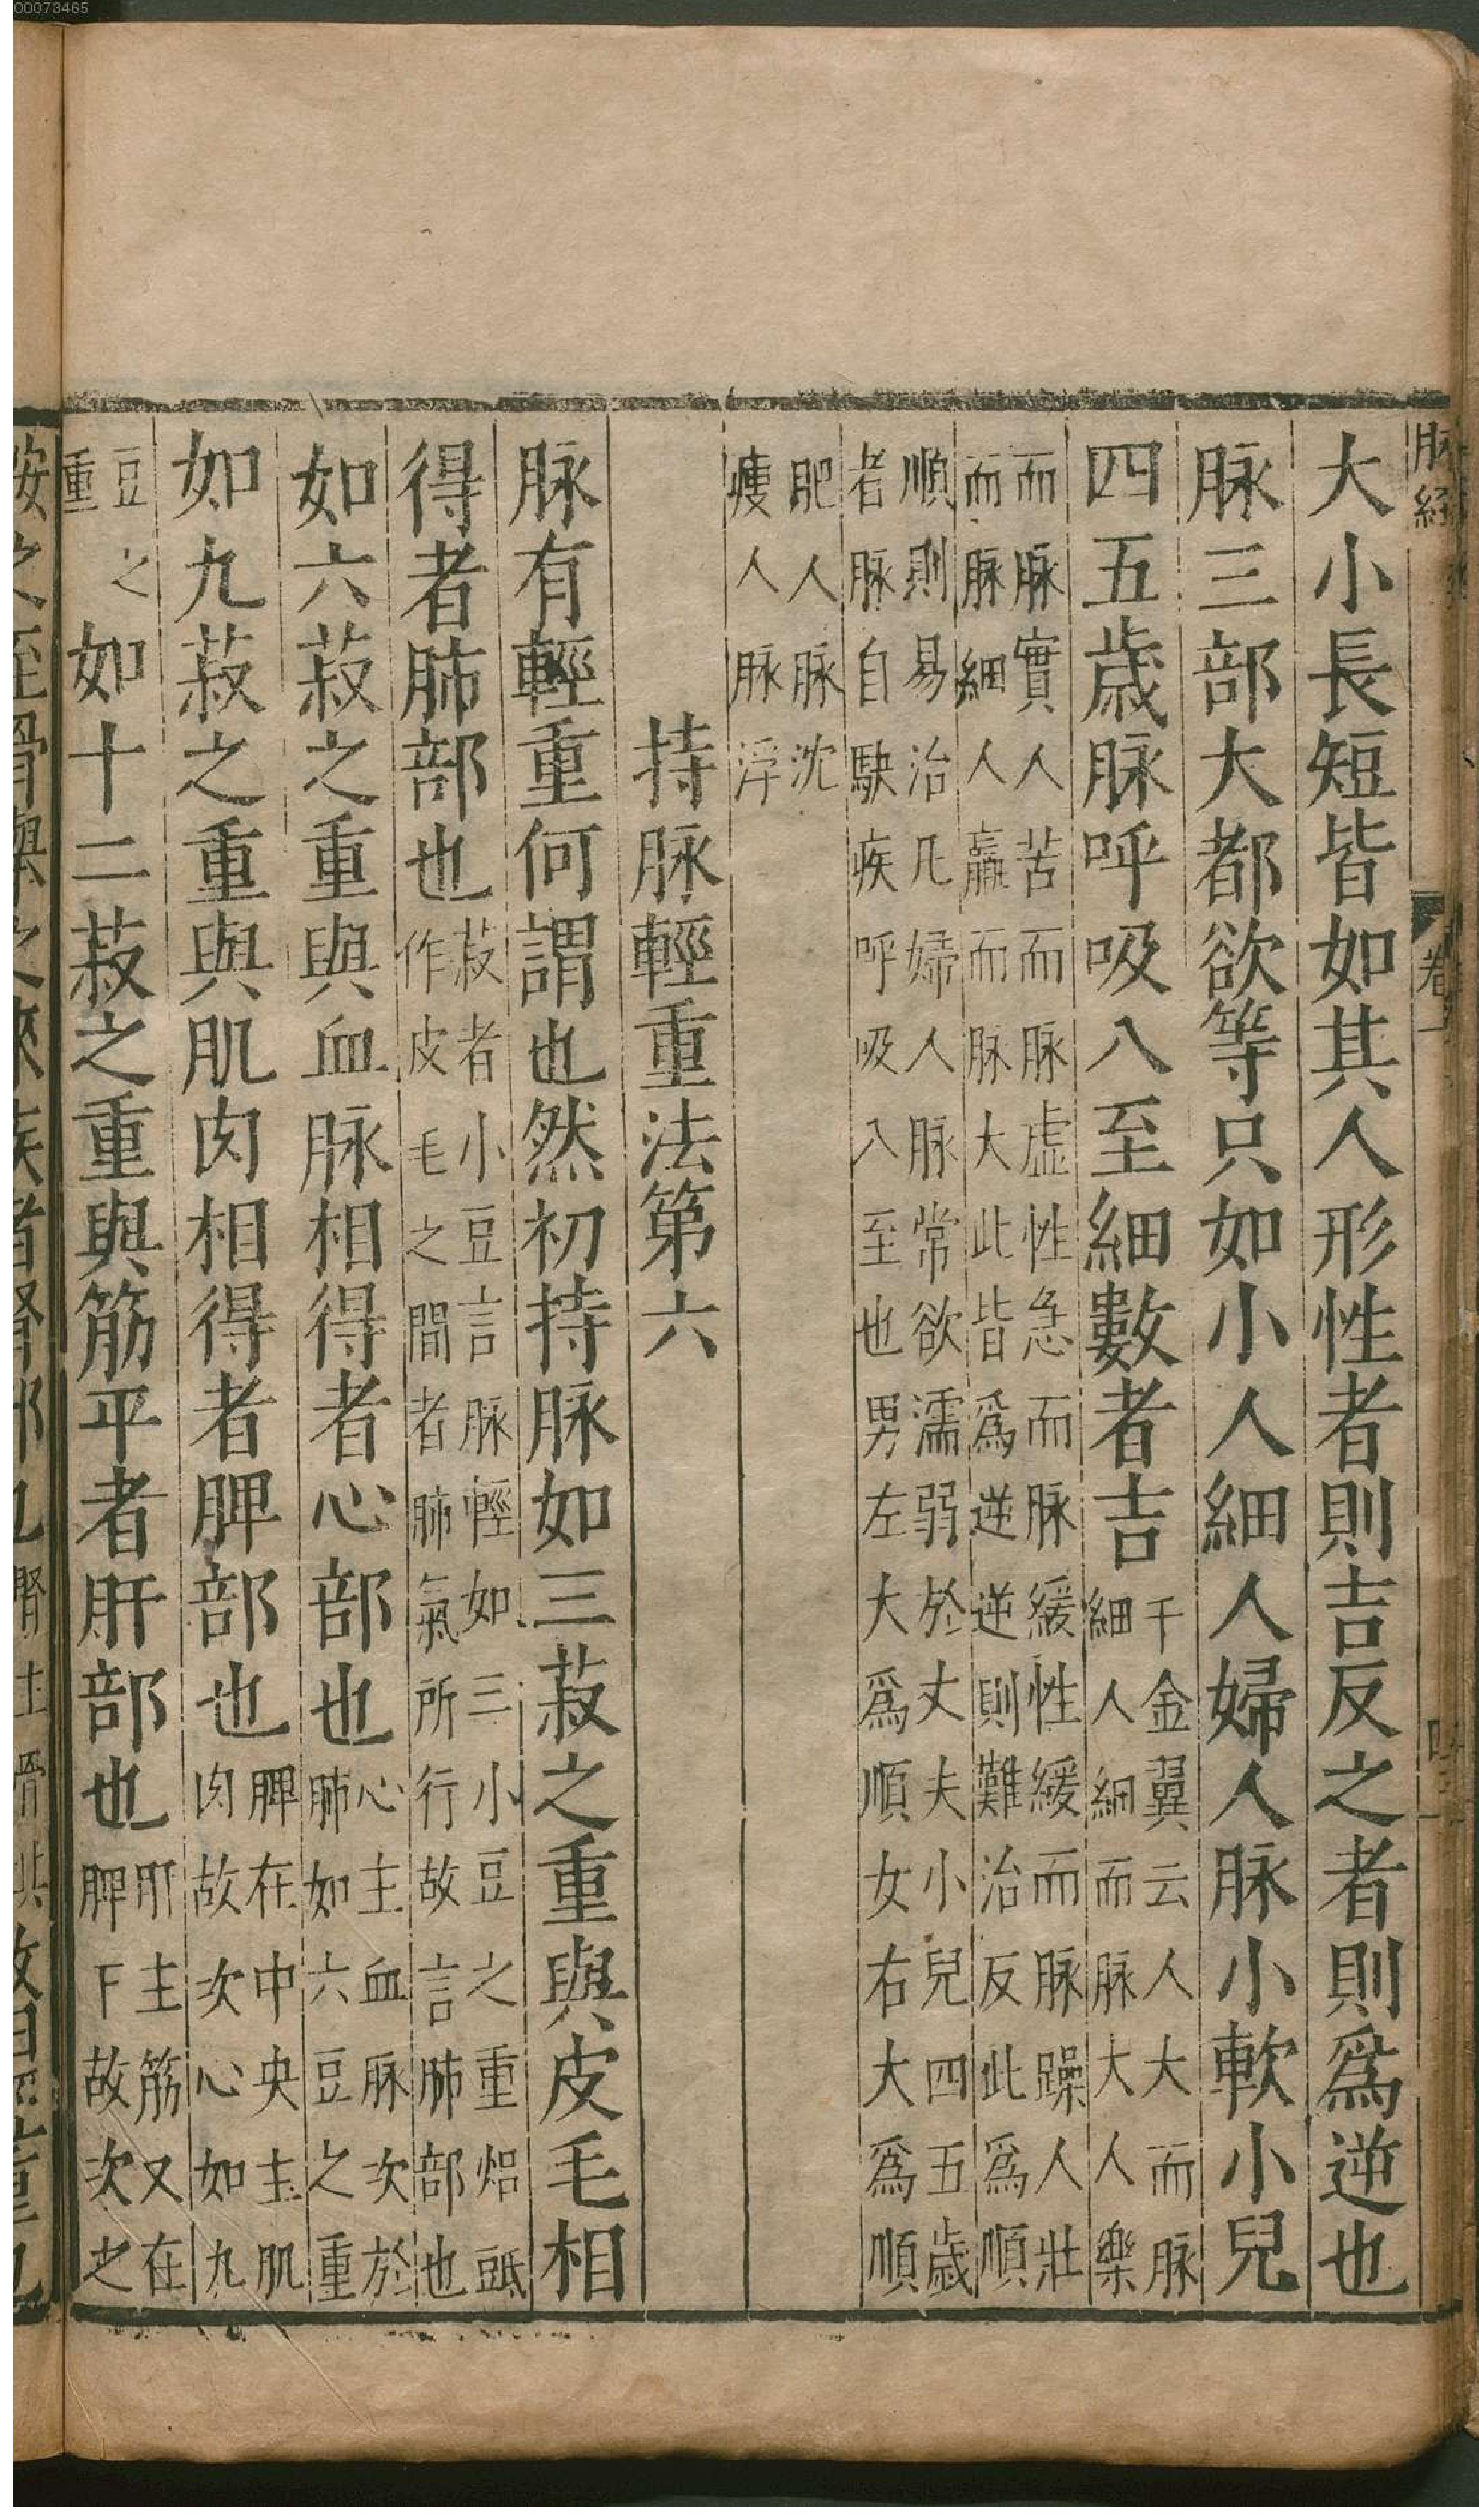 00073465
脉經
卷一
大小長短皆如其人形性者則吉反之者則爲逆也
脉三部大都欲等只如小人細人婦人脉小軟小兒
四五歲脉呼吸八至細數者吉千金翼云人大而脉
細人細而脉大人樂
而脉實人苦而脉虛性急而脉緩性緩而脉躁人壯
而脉細人羸而脉大此皆爲逆逆則難治反此爲順
順則易治凡婦人脉常欲濡弱於丈夫小兒四五歲
者脉自駃疾呼吸八至也男左大爲順女右大爲順
肥人脉沈
瘦人脉浮
持脉輕重法第六
脉有輕重何謂也然初持脉如三菽之重與皮毛相
得者肺部也菽者小豆言脉輕如三小豆之重焒㽿
作皮毛之間者肺氣所行故言肺部也
如六菽之重與血脉相得者心部也心主血脉次於
肺如六豆之重
如九菽之重與肌肉相得者脾部也脾在中央主肌
肉故次心如九
豆之
重
如十二菽之重與筋平者肝部也肝主筋又在
脾下故次之
按之至骨舉之來疾者腎部也腎主骨其